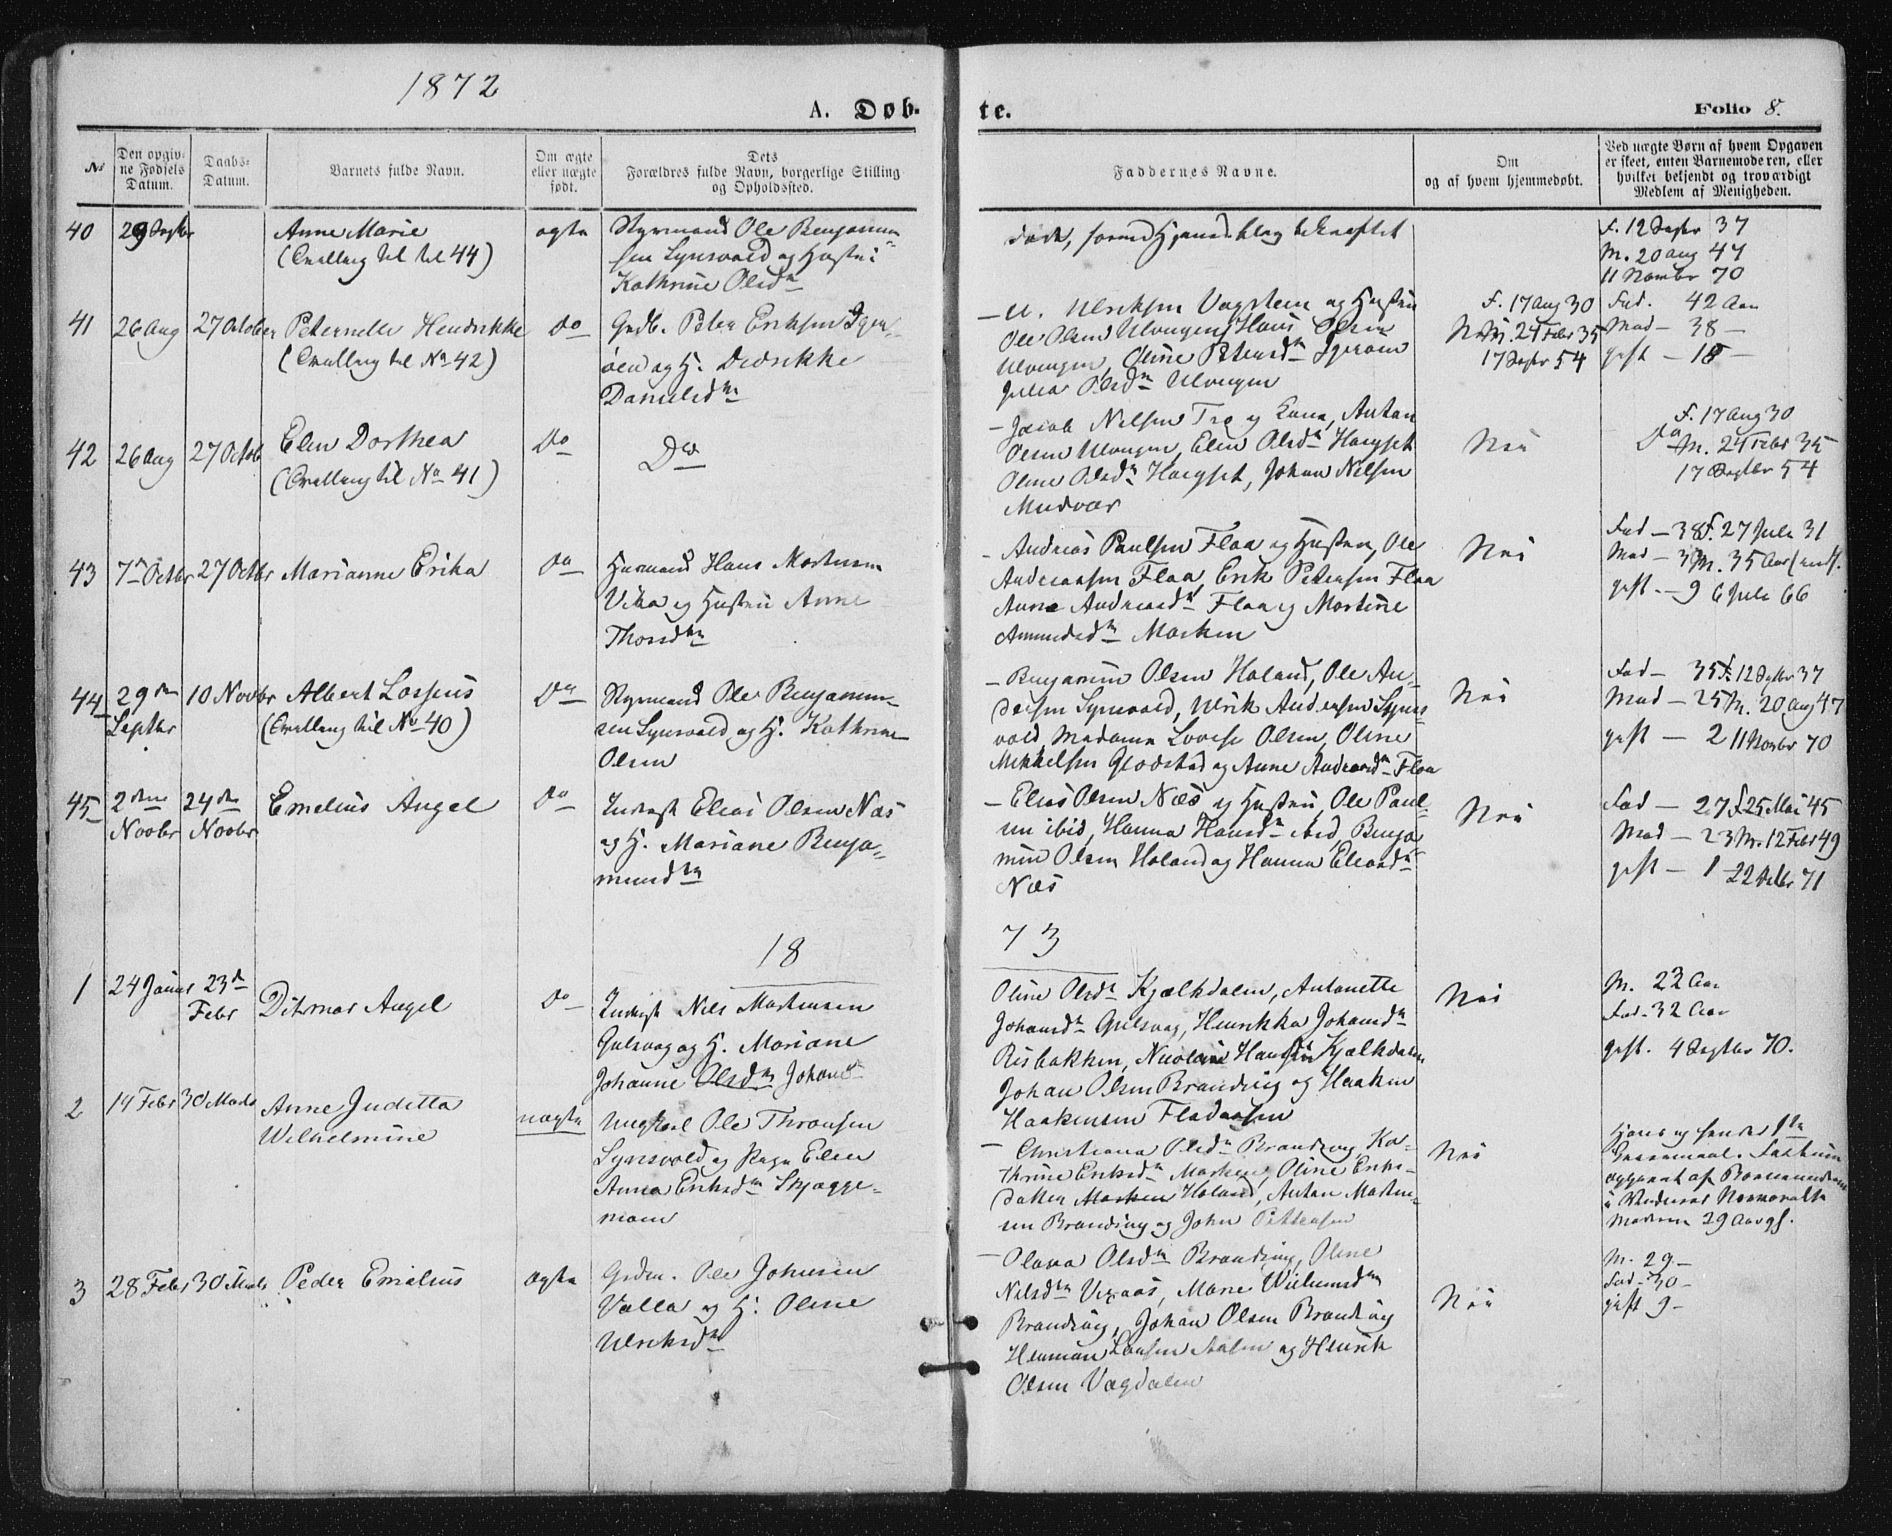 1872
A. Døb-
te.
Folio 8.
No
Den opgiv-
ne Fødsels
Datum.
Daabs-
Datum.
Barnets fulde Navn.
Om ægte
eller uægte
født.
Dets
Forældres fulde Navn, borgerlige Stilling
og Opholdssted.
Faddernes Navne.
Om
og af hvem hjemmedøbt.
Ved uægte Børn af hvem Opgaven
er skeet, enten Barnemoderen, eller
hvilket bekjendt og troværdigt
Medlem af Menigheden.
40
29 Septbr
Anne Marie
(Tvilling til 44)
ægte
Styrmand Ole Benjamin
sen Synsvold og Hustru
Kathrine Olsdn
F. 12 Septbr 37
M. 20 aug 47
11 Novbr 70
41
26 Aug
27 October
Peternelle Hendrikke
(Tvilling til No 42)
Do
Gmdb. Peter Eriksen
øen og H. Didrikke
Danielsdn
U. Ulriksen Vagsteen og Hustru
Ole Olsen Ulvengen, Hans Olsen
Ulvengen, Oline Petersdn
Julia Olsdn Ulvengen
Nei
F. 17 Aug 30
M. 24 Febr 35
17 Septbr 54
Fad. 42 Aar
Mad – 38 –
gift – 18 –
42
26 Aug
27 Octob
Elen Dorthea
(Tvilling til No 41)
Do
Do
Jacob Nilsen Tro og Kona, Anton
Olsen Ulvengen, Elen Olsdn
Oline Olsdn, Johan Nilsen
Mudvær
Nei
Do
F. 17 Aug 30
M. 24 Febr 35
17 Septbr 54
43
7de Octbr
27 Octbr
Marianne Erika
Do
Huusmand Hans Mortensen
Vika og Hustru Anne
Thorsdn
Andreas Paulsen Flaa og Hustru, Ole
Andreassen Flaa, Erik Petersen Flaa
Anne Andreasdn Flaa og Martine
Amundsdn Marken
Nei
Fad – 38 F. 27 Juli 31
Mad – M. 35 Aar
gift. – 9 6 Juli 66
44
29de
Septbr
10 Novbr
Albert Lossius
(Tvilling til No 40)
Do
Styrmand Ole Benjamin-
sen Synsvold og H. Kathrine
Olsen
Benjamin Olsen Høland, Ole An-
dersen Synsvold, Ulrik Andersen Syns-
vold Madame Lovise Olsen, Oline
Mikkelsen og Anne Andreasdn Flaa
Nei
Fad – 35 F. 12 Septbr 37
Mad – 25 M. 20 Aug 47
gift – 2 11 Novbr 70
45
2den
Novbr
24de
Novbr
Emelius Angel
Do
Inderst Elias Olsen Næs
og H. Mariane Benja-
minsdn
Elias Olsen Næs og Hustru, Ole Paul-
sen ibid, Hanna Hansdn ibid, Benja-
min Olsen Høland og Hanna Eliasdn
Næs
Nei
Fad – 27 F. 25 Mai 45
Mad – 23 M. 12 Febr 49
gift – 1 – 22 71
1873
1
24 Januar
23de
Febr
Ditmar Angel
Do
Inderst Nils Mortensen
Gulsvag og H. Mariane
Johanne Olsdn Johans
Oline Olsdn Kjælkdalen, Antonette
Johansdn Gulsvag, Henrikka Johansdn
Risbakken, Nicoline Hansdn Kjælkdalen
Johan Olsen Branding og Haaken
Haakensen Fladaasen
Nei
M. 22 Aar
Fad. 32 Aar
gift. 4 Septbr 70.
2
14 Febr
30 Marts
Anne Juditta
Wilhelmine
uægte
Ungkarl Ole Thronsen
Synsvold og Pige Elen
Anna Eriksdn
Christiana Olsdn Branding Ka-
thrine Eriksdn Marken, Oline Eriks-
datter Høland, Anton Morten-
sen Branding og John Pettersen
Nei
Moderen 29 Aar gl.
3
28 Febr
30 Marts
Peder Emelius
ægte
Grdm. Ole Johnsen
Valla og H. Oline
Ulriksdn
Olava Olsdn Branding, Oline
Nilsdn, Marie Willumsdn
Branding, Johan Olsen Branding
Herman Larsen og Henrik
Olsen Vagdalen
Nei
M. 29 –
Fad – 30 –
gift 9 –